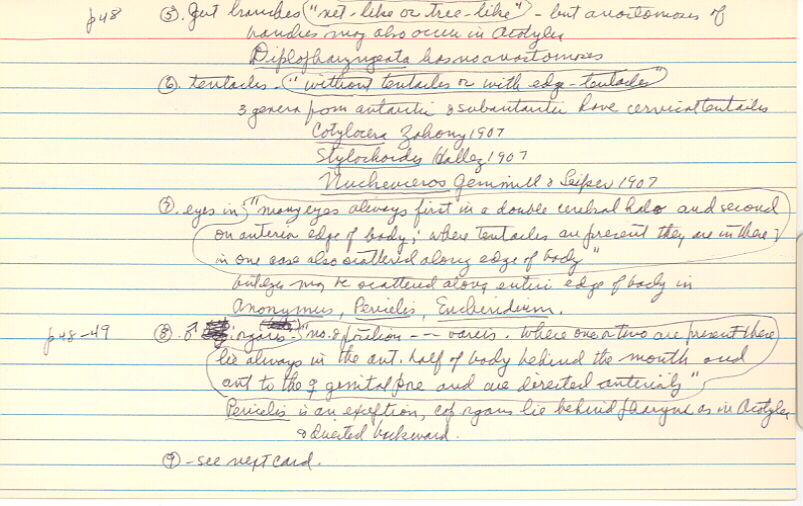 p48 ⑤. Gut branches "net-like or tree-like" - but anastomoses of
branches may also occur in Acotylea
Diplopharyngeata has no anastomoses
⑥. tentacles - "without tentacles or with edge-tentacles"
3 genera from antarctic & subantarctic have cervical tentacles
Cotylocera Zahony 1907
Stylochoides Hallez 1907
Nuchenceros Gemmill & Leiper 1907
⑦. eyes in "many eyes always first in a double cerebral halo and second
on anterior edge of body; where tentacles are present they are in these;
in one case also scattered along edge of body"
but eyes may be scattered along entire edge of body in
Anonymus, Pericelis, Enchiridium.
p48-49 ⑧. ♂ organs - "no. & position -- varies. Where one or two are present these
lie always in the ant. half of body behind the mouth and
ant to the ♀ genital pore and are directed anteriorly"
Pericelis is an exception, cop organs lie behind pharynx as in Acotylea
& directed backward.
⑨ - see next card.